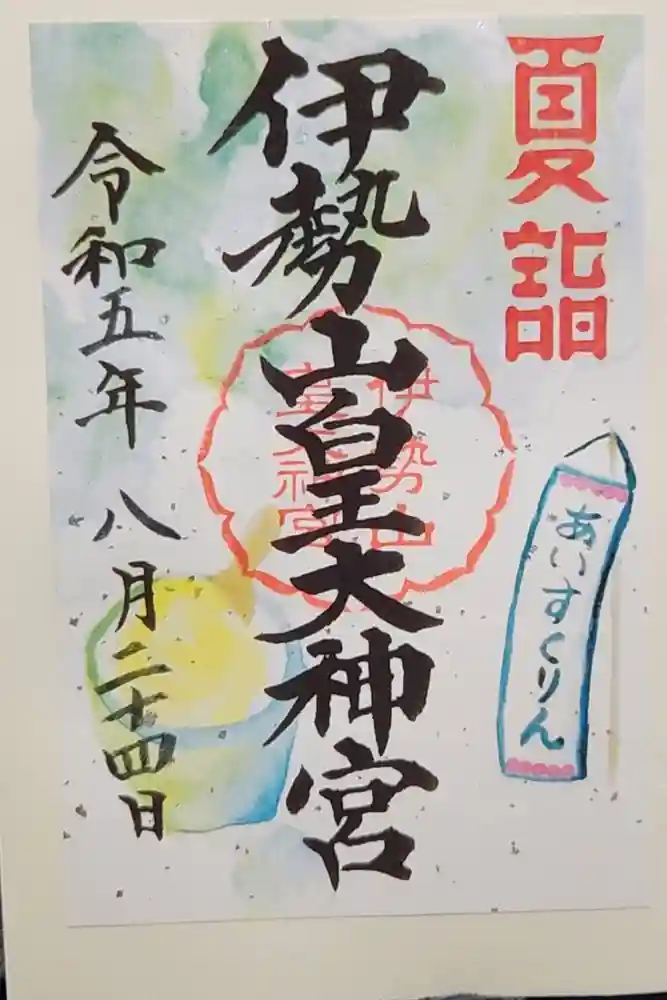 夏詣
あいすくりん
伊勢山皇大神宮
伊勢山
皇大神宮
令和五年八月二十四日